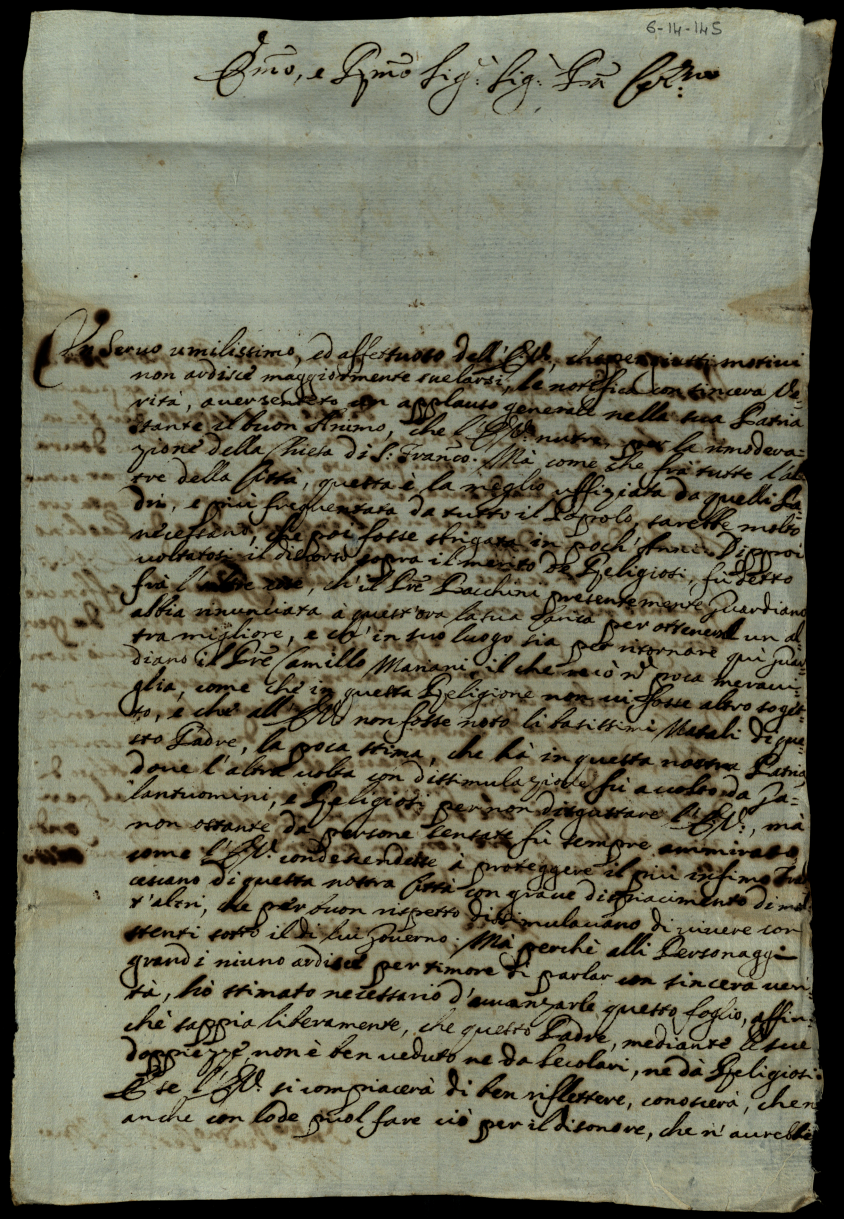 6-14-145
Emo, e Rmo Sig.r Sig.r Prn Col.mo
Un Servo umilissimo, ed affettuoso dell'E.V., che per giusti motivi
non ardisce maggiormente svelarsi, le notifica con sincera Ve-
rità, aver sentito un applauso generale nella sua Patria
stante il buon Animo, che l'E.V. nutre, per la rimoderna-
zione della Chiesa di S. Franco. Mà come che frà tutte l'al-
tre della Città, questa è la meglio uffiziata da quelli Pa-
dri, e più frequentata da tutto il Popolo, sarebbe molto
necessario, che poi fosse sbrigata in poch'Anni. Di poi
voltatosi il discorso sopra il merito de Religiosi, fù detto
frà l'altre cose, ch'il Pre Pacchini presentemente Guardiano
abbia rinunciata à quest'ora la sua Carica per ottenerne un al-
tra migliore, e ch'in suo luogo sia per ritornare quì Guar-
diano il Pre Camillo Mariani, il che recò nõ poca meravi-
glia, come che in questa Religione non vi fosse altro sogget-
to, e che all'E.V. non fosse noto li bassissimi Natali di que-
sto Padre, la poca stima, che hà in questa nostra Patria,
dove l'altra volta con dissimulazione fù accolto da Ga-
lantuomini, e Religiosi per non disgustare l'E.V., mà
non ostante da persone sensate fù sempre ammirato
come l'E.V. condescendesse à proteggere il più infimo Fran-
cescano di questa nostra Città con grave dispiacimento di mol-
t'altri, che per buon rispetto dissimulavano di vivere con
stenti sotto il di lui Governo. Mà perchè alli Personaggi
grandi niuno ardisce per timore di parlar con sincera veri-
tà, hò stimato necessario d'avvanzarle questo foglio, affin-
chè sappia liberamente, che questo Padre, mediante le sue
doppiezze, non è ben veduto ne da Secolari, ne dà Religiosi.
E se l'E.V. si compiacerà di ben riflettere, conoscerà, che n
anche con lode puol fare ciò per il disonore, che n'avrebbe